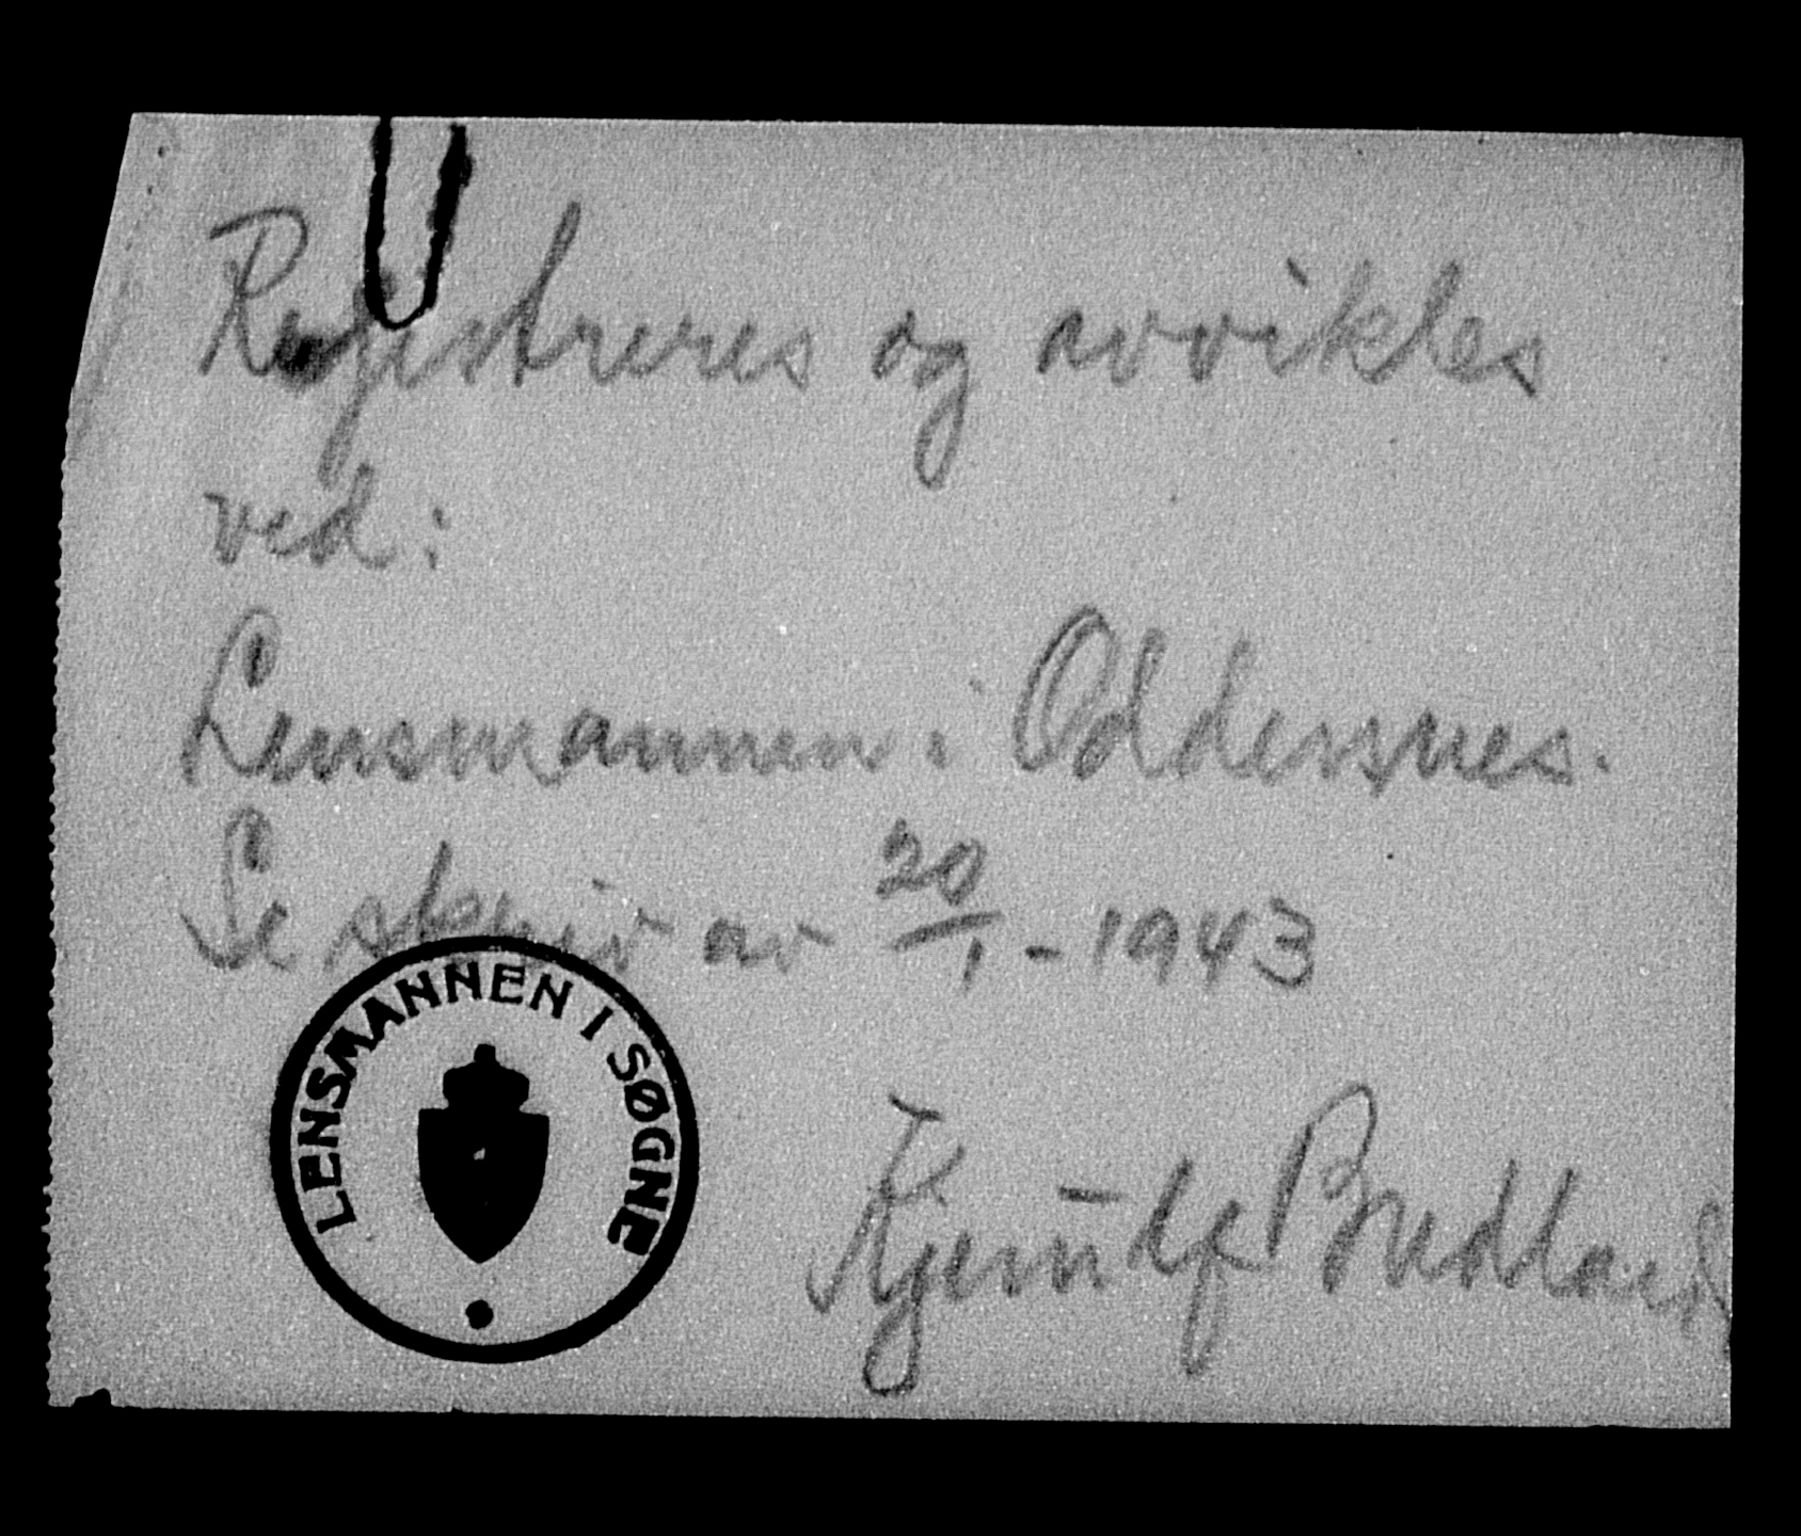 Registreres og avvikles
ved:
Lensmannen i Oddernes.
Se skriv av 20/1 - 1943
LENSMANNEN I SØGNE